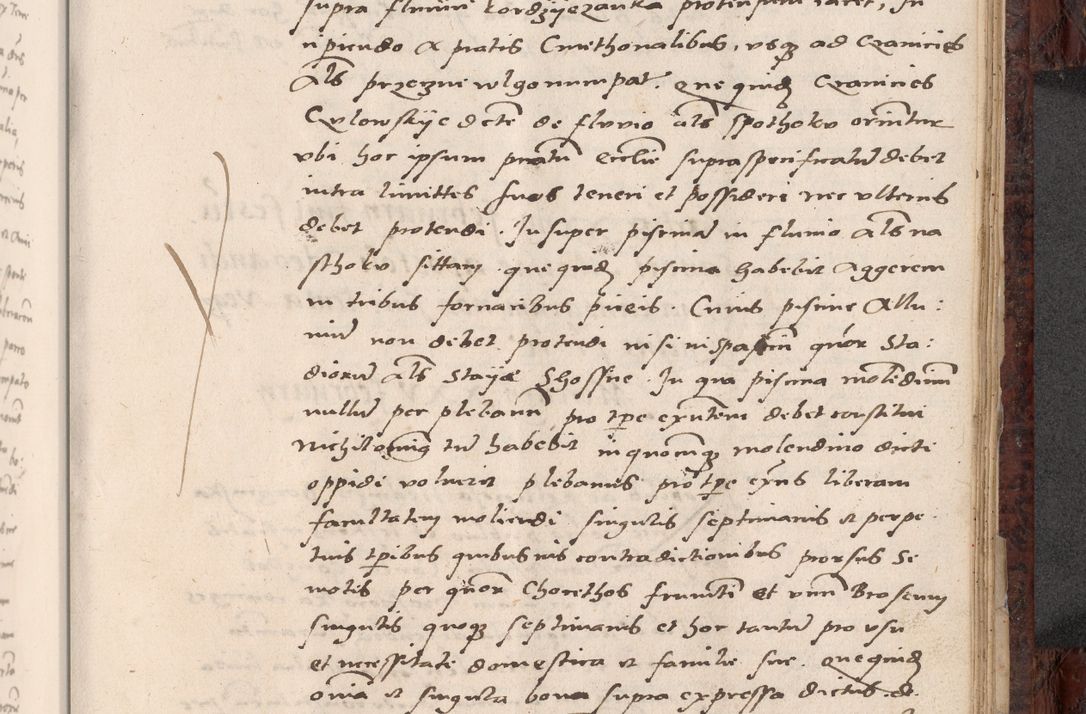 supra fluvii Kordzyiezanka protensum iacet, In
npiendo & pratis Cmethonalibus, vsq ad Granicies
Als przecznie wlgo nunupat. Que quidem Granicies
Culowskije dcte de fluvio als spothoku oriuntur
vbi hoc ipsum pratum ecclie supra specificatum debet
intra limittes suos teneri et possideri nec vlterius
debet protendi. Insuper piscinam in fluuio Als na
sthoku sittam. que quidem piscina habebit Aggerem
in tribus fornacibus pineis. Cuius piscine Allu:
uium non debet protendi nisi in spacium quor Sta:
diorum als Stayae Shossne. In qua piscina molendinum
nullum per plebanum pro tpe existentem debet constitui
Nichilominus tum habebit in quocunq molendino dicti
oppidi voluerit plebanus pro tpe exns liberam
facultatem molendi singulis septimanis et perpe
tuis tpibus quibusuis contradictionibus prorsus Se
motis per quor Chorethos frumti et vnum Braseum
singulis quoq septimanis et hoc tantum pro vsu
et necessitate domestica et familie sue. Que quidem
omia et singula bona supra expressa dictus d